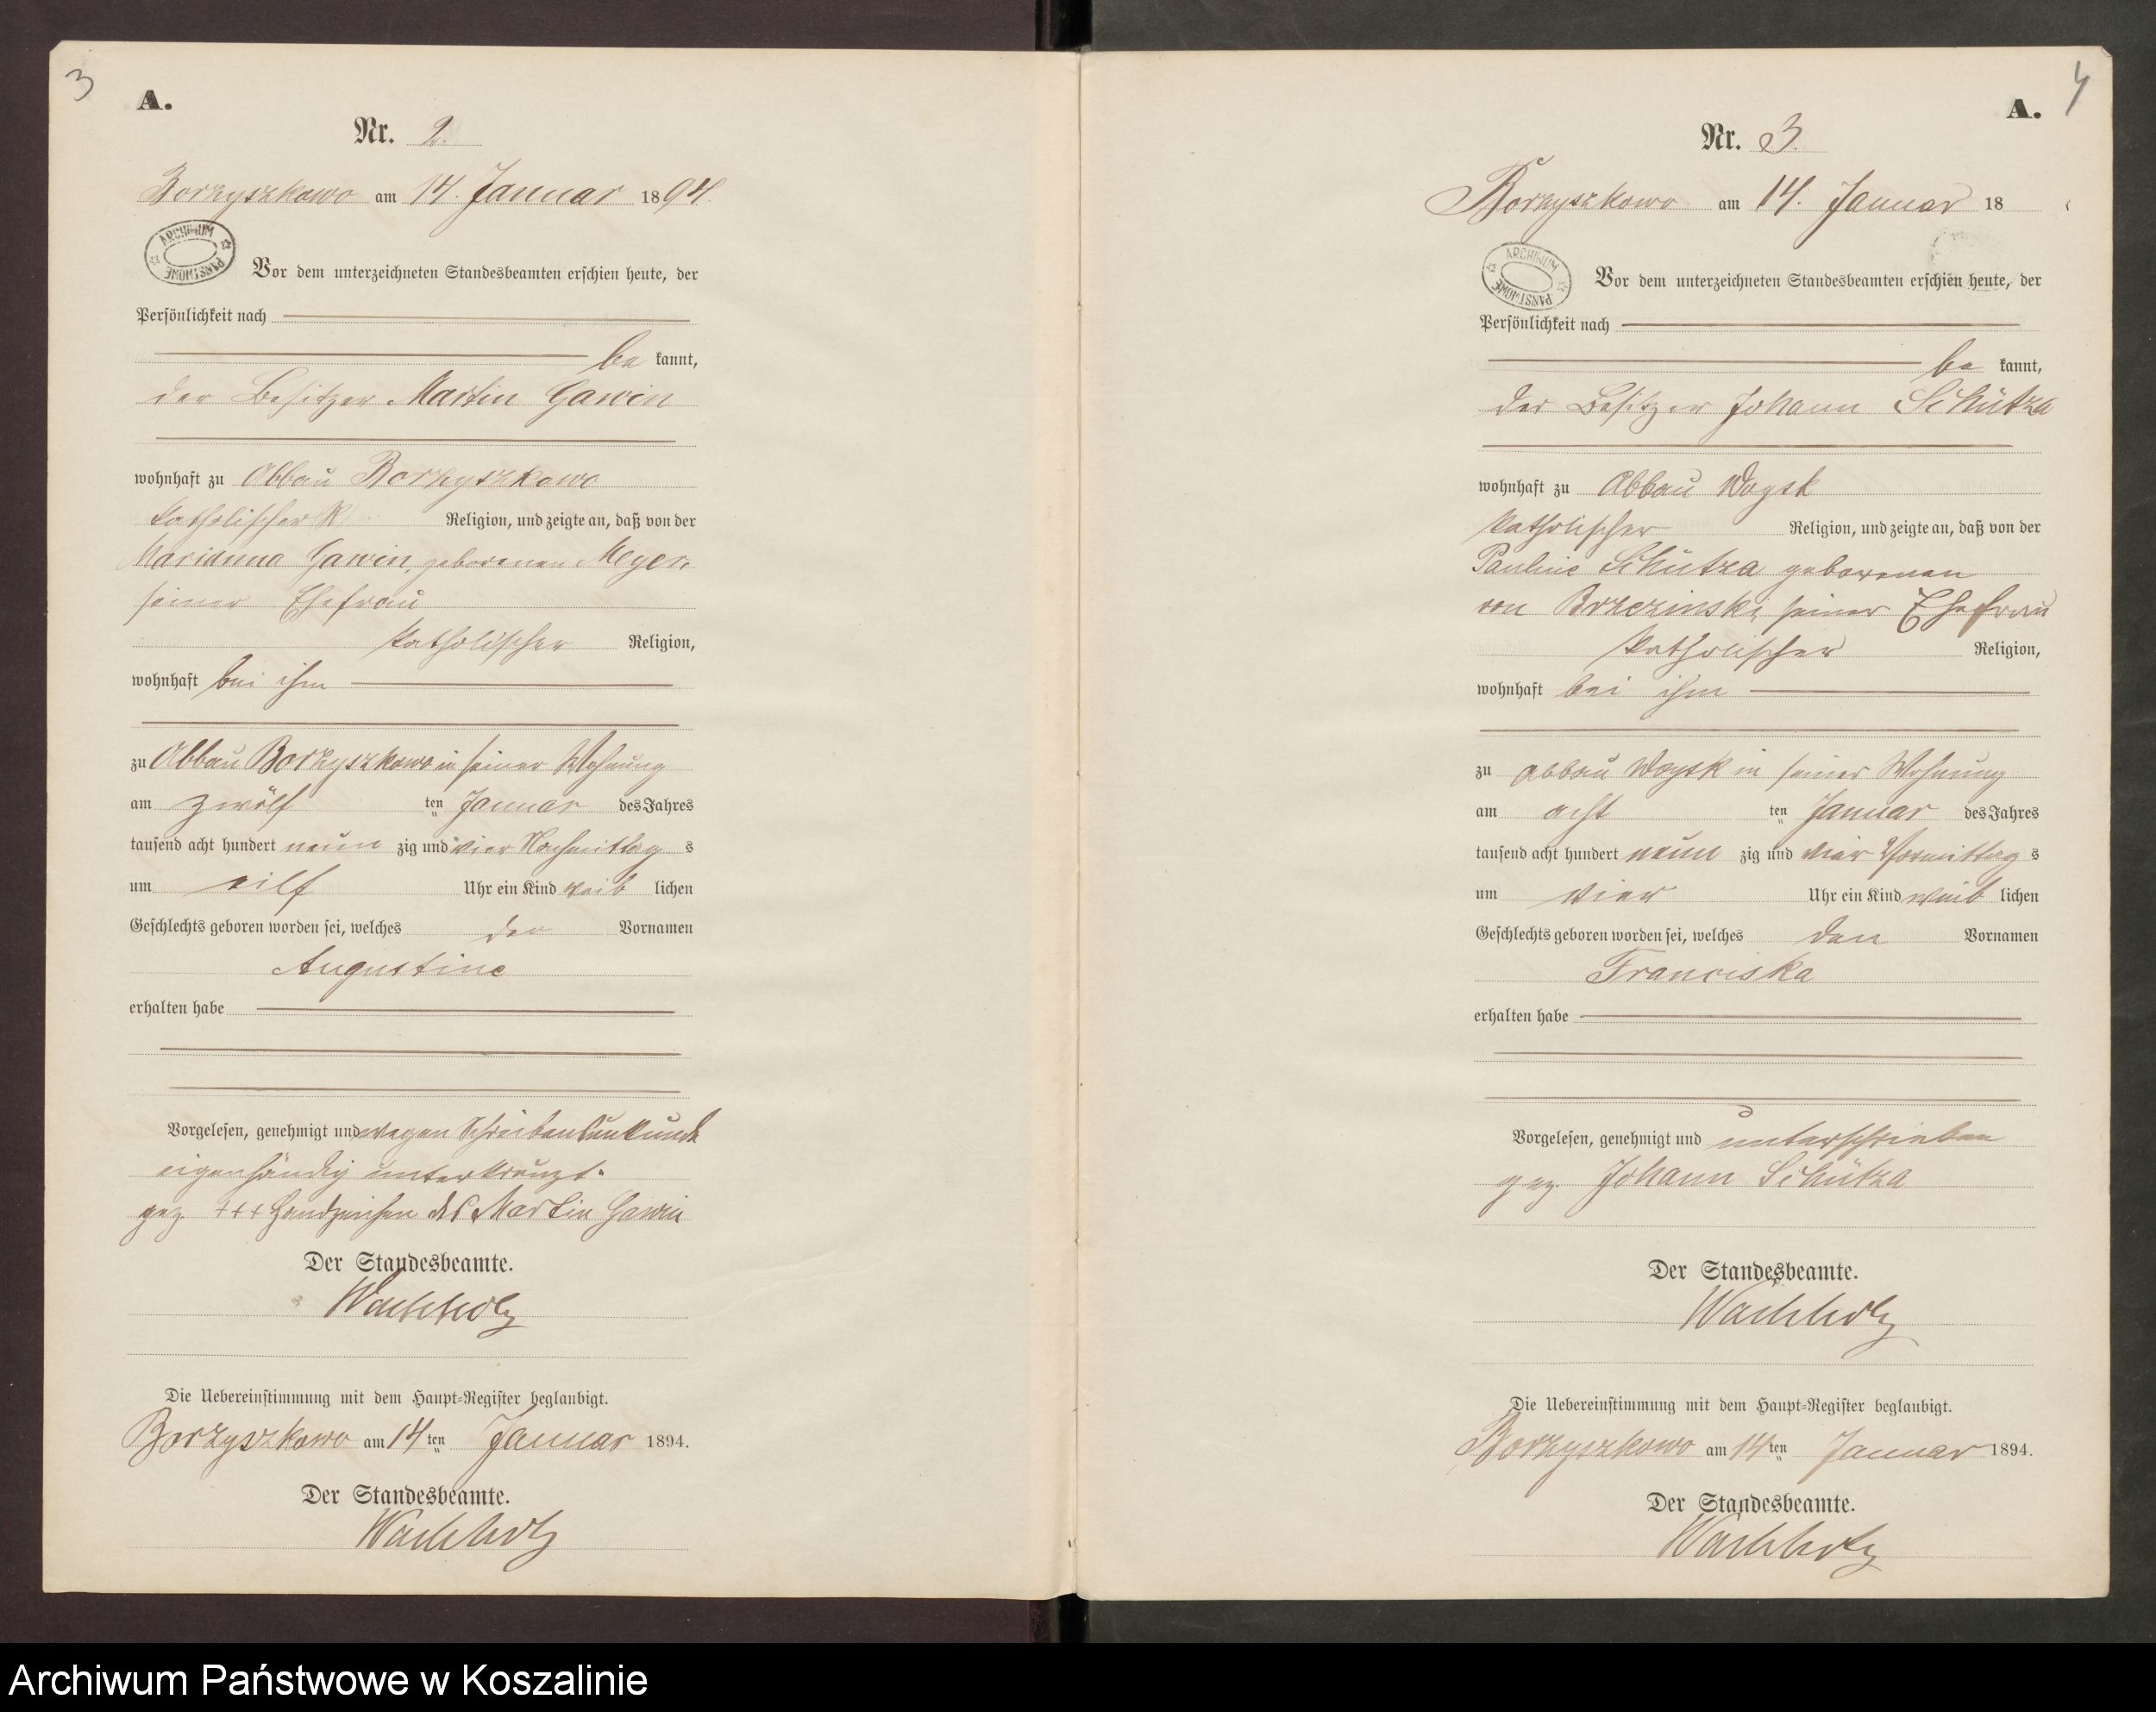 3
A.
Nr. 2.
Borzyszkowo am 14. Januar 1894.
ARCHIWUM PAŃSTWOWE
Vor dem unterzeichneten Standesbeamten erschien heute, der
Persönlichkeit nach
be kannt,
der Besitzer Martin Gawin
wohnhaft zu Abbau Borzyszkowo
katholischer Religion, und zeigte an, daß von der
Marianna Gawin, geborenen Meyer,
seiner Ehefrau
katholischer Religion,
wohnhaft bei ihm
zu Abbau Borzyszkowo in seiner Wohnung
am zwölf ten Januar des Jahres
tausend acht hundert neun zig und vier Nachmittag s
um eilf Uhr ein Kind weib lichen
Geschlechts geboren worden sei, welches den Vornamen
Augustine
erhalten habe
Vorgelesen, genehmigt und wegen Schreibensunkunde
eigenhändig unterkreuzt.
gez. +++ Handzeichen des Martin Gawin
Der Standesbeamte.
Wachholz
Die Uebereinstimmung mit dem Haupt-Register beglaubigt.
Borzyszkowo am 14 ten Januar 1894.
Der Standesbeamte.
Wachholz
4
A.
Nr. 3.
Borzyszkowo am 14. Januar 18
ARCHIWUM PAŃSTWOWE
Vor dem unterzeichneten Standesbeamten erschien heute, der
Persönlichkeit nach
be kannt,
der Besitzer Johann Schütza
wohnhaft zu Abbau Woysk
katholischer Religion, und zeigte an, daß von der
Pauline Schütza geborenen
von Brzezinski, seiner Ehefrau
katholischer Religion,
wohnhaft bei ihm
zu Abbau Woysk in seiner Wohnung
am acht ten Januar des Jahres
tausend acht hundert neun zig und vier Vormittag s
um vier Uhr ein Kind weib lichen
Geschlechts geboren worden sei, welches den Vornamen
Franciska
erhalten habe
Vorgelesen, genehmigt und unterschrieben
gez. Johann Schütza
Der Standesbeamte.
Wachholz
Die Uebereinstimmung mit dem Haupt-Register beglaubigt.
Borzyszkowo am 14 ten Januar 1894.
Der Standesbeamte.
Wachholz
Archiwum Państwowe w Koszalinie